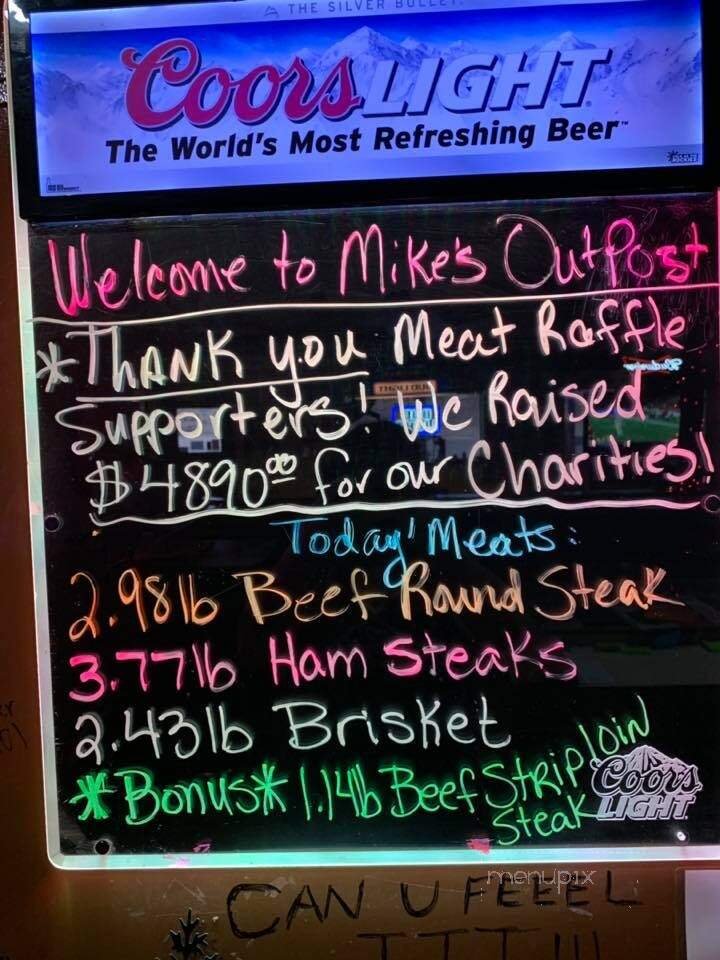 THE SILVER BULLET.
Coors LIGHT
The World's Most Refreshing Beer™
Welcome to Mike's OutPost
*THANK you Meat Raffle
Supporters! We Raised
$4890.00 for our Charities!
Today' Meats:
2.98lb Beef Round Steak
3.77lb Ham Steaks
2.43lb Brisket
*Bonus* 1.14lb Beef Strip loin
Steak
Coors
LIGHT
menupix
CAN U FEEEL